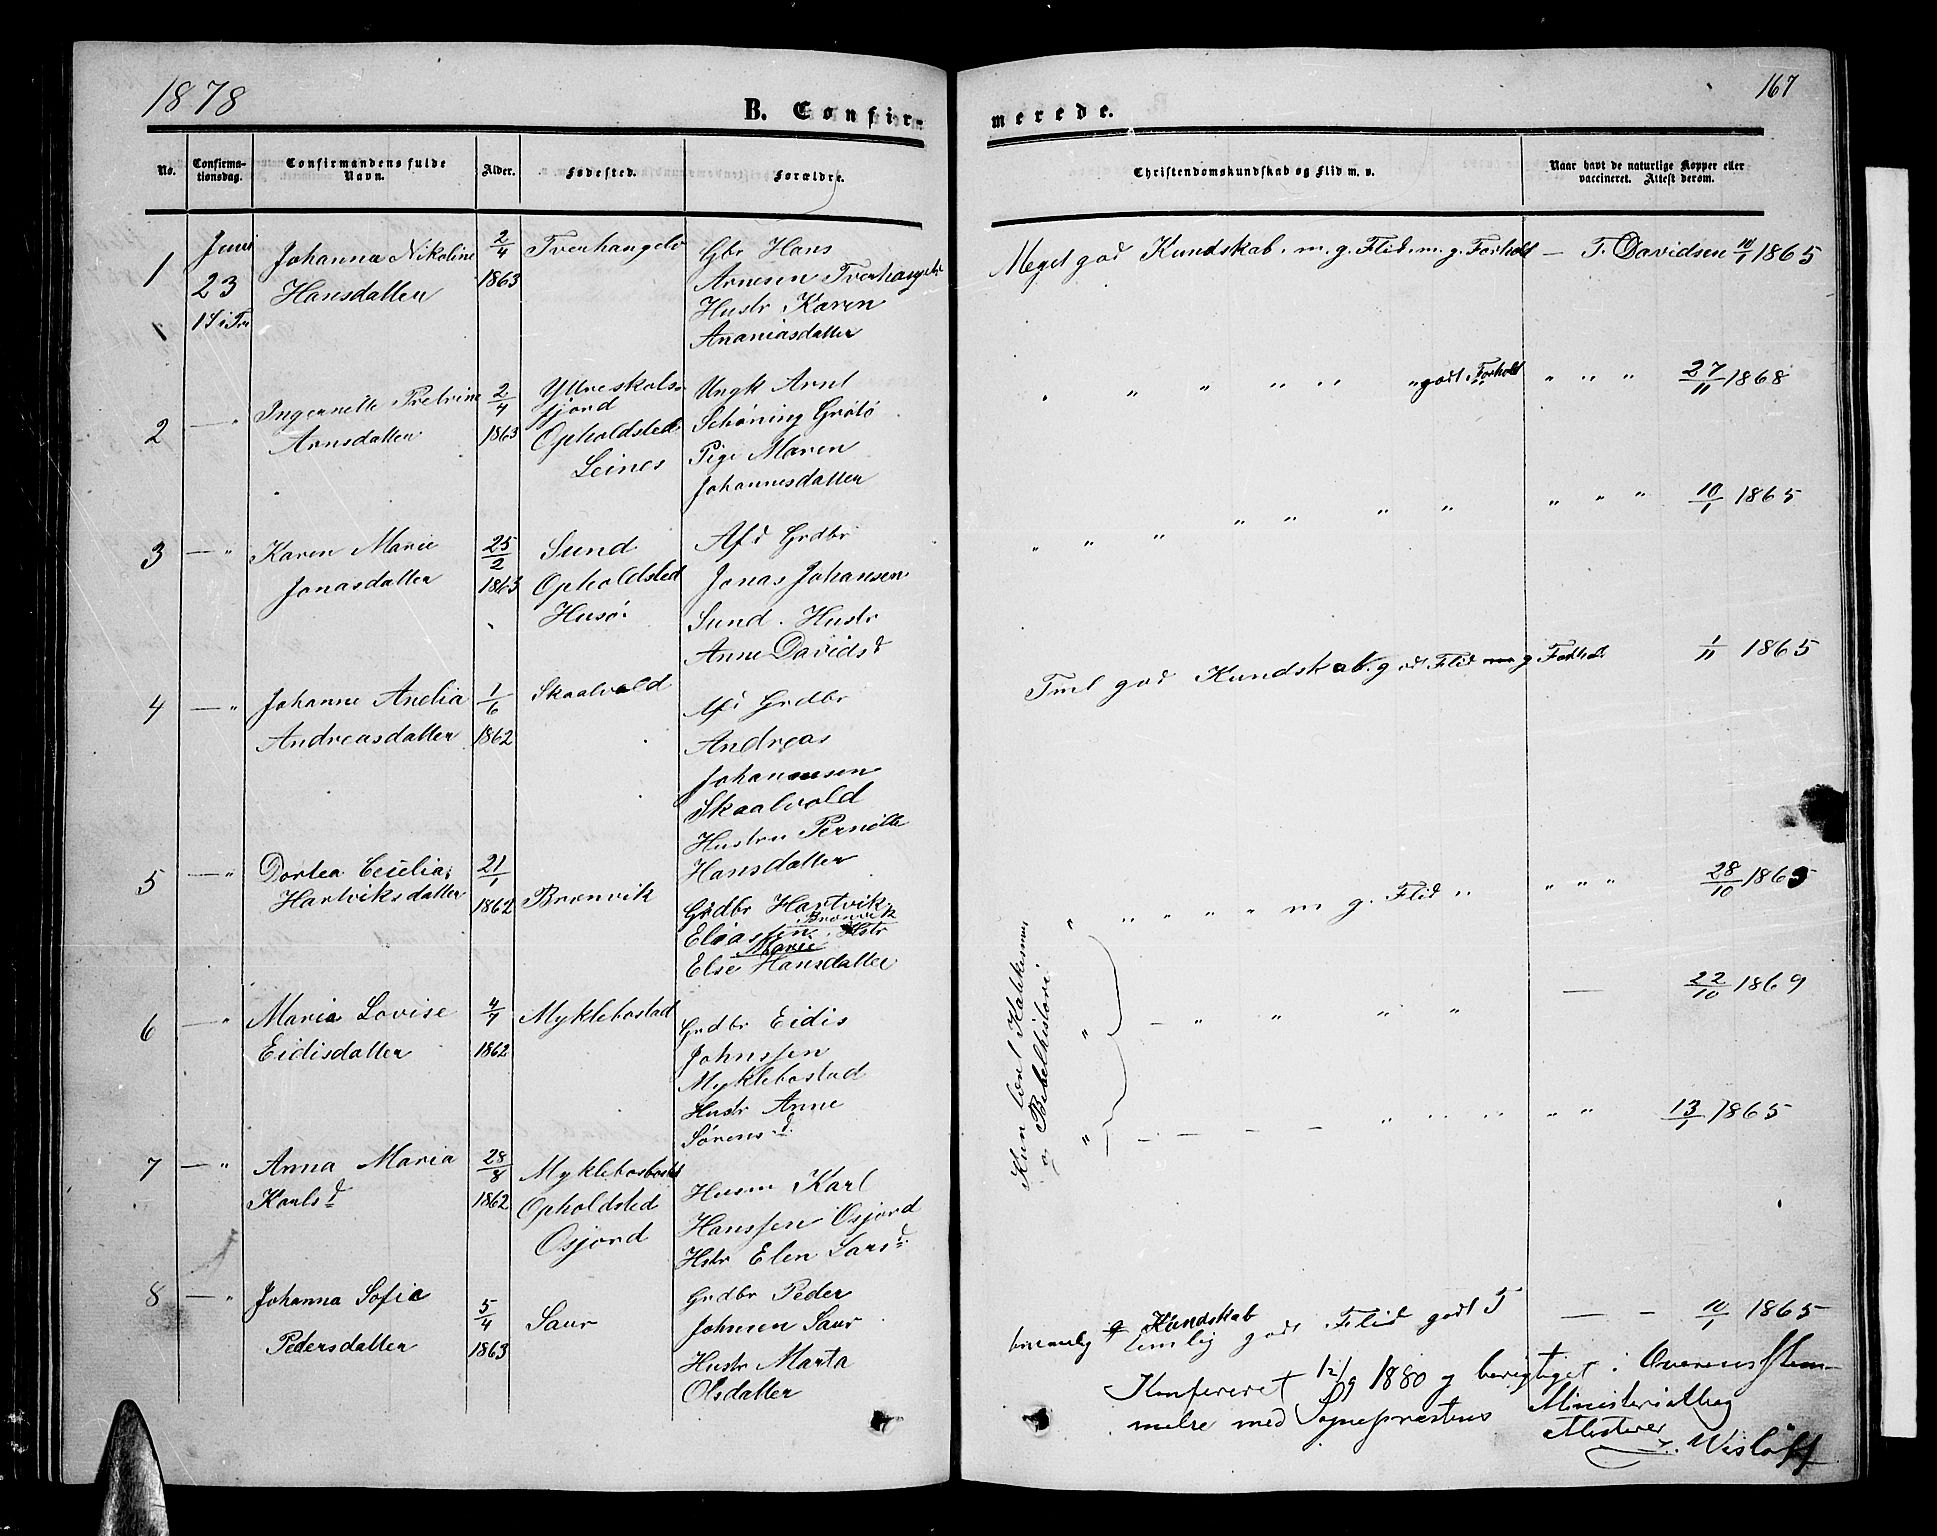 1878
167
B. Confir-
merede.
No.
Confirma-
tionsdag.
Confirmandens fulde
Navn.
Alder.
Fødested.
Forældre.
Christendomskundskab og Flid m. v.
Naar havt de naturlige Kopper eller
vaccineret. Attest derom.
1
Juni
23
1 S i Tr
Johanna Nikoline
Hansdatter
2/4
1863
Tverhangelv
Gbr Hans
Arnesen Tverhangelv
Hustr Karen
Ananiasdatter
Meget god Kundskab. m. g. Flid. m. g. Forhold — T. Davidsen 10/1 1865
2 — "
Ingernette Petrine
Arnsdatter
2/4
1863
Yttreskols-
fjord
Opholdsted
Leines
Ungk Arnt
Schøning Grøtø
Pige Maren
Johannesdatter
" " " " " " godt Forhold " " " 27/11 1868
3 — "
Karen Marie
Jonasdatter
25/2
1863
Sund
Opholdsted
Husø.
Afd Grdbr
Jonas Johansen
Sund. Hustr
Anne Davidsd
" " " " " " " " " " 10/1 1865
4 — "
Johanne Anelia
Andreasdatter
1/6
1862
Skaalvold
Afd Grdbr
Andreas
Johannesen
Skaalvold
Hustru Pernille
Hansdatter
Tml god Kundskab. god Flid g Forhold. 1/11 1865
5 — "
Dortea Cecelia
Hartviksdatter
21/1
1862
Brænvik
Grdbr Hartvik
Brænvik
Eliassen. Hstr
Marie
Else Hansdatter
" " " " " m g. Flid " " " " 28/10 1865
6 — "
Maria Lovise
Eidisdatter
4/7
1862
Myklebostad
Grdbr Eidis
Johnssen
Myklebostad
Hustr Anne
Sørensd.
" — " " " " — 22/10 1869
7 — "
Anna Maria
Karlsd
28/8
1862
Myklebostad
Opholdsted
Osjord
Husm Karl
Hanssen Osjord
Hstr Elen Larsd.
" — — — — " " " " " 13/1 1865
Kun lært Katekismus
og Bibelhistorie
8 — "
Johanna Sofia
Pedersdatter
5/4
1863
Saur
Grdbr Peder
Johnsen Saur
Hustr Marta
Olsdatter
Kundskab
temlig god Flid godt F — — 10/1 1865
Konfereret 12/9 1880 og berigtiget i Overensstem-
melse med Sognepræstens Ministerialbog
Attesterer
Wisløff